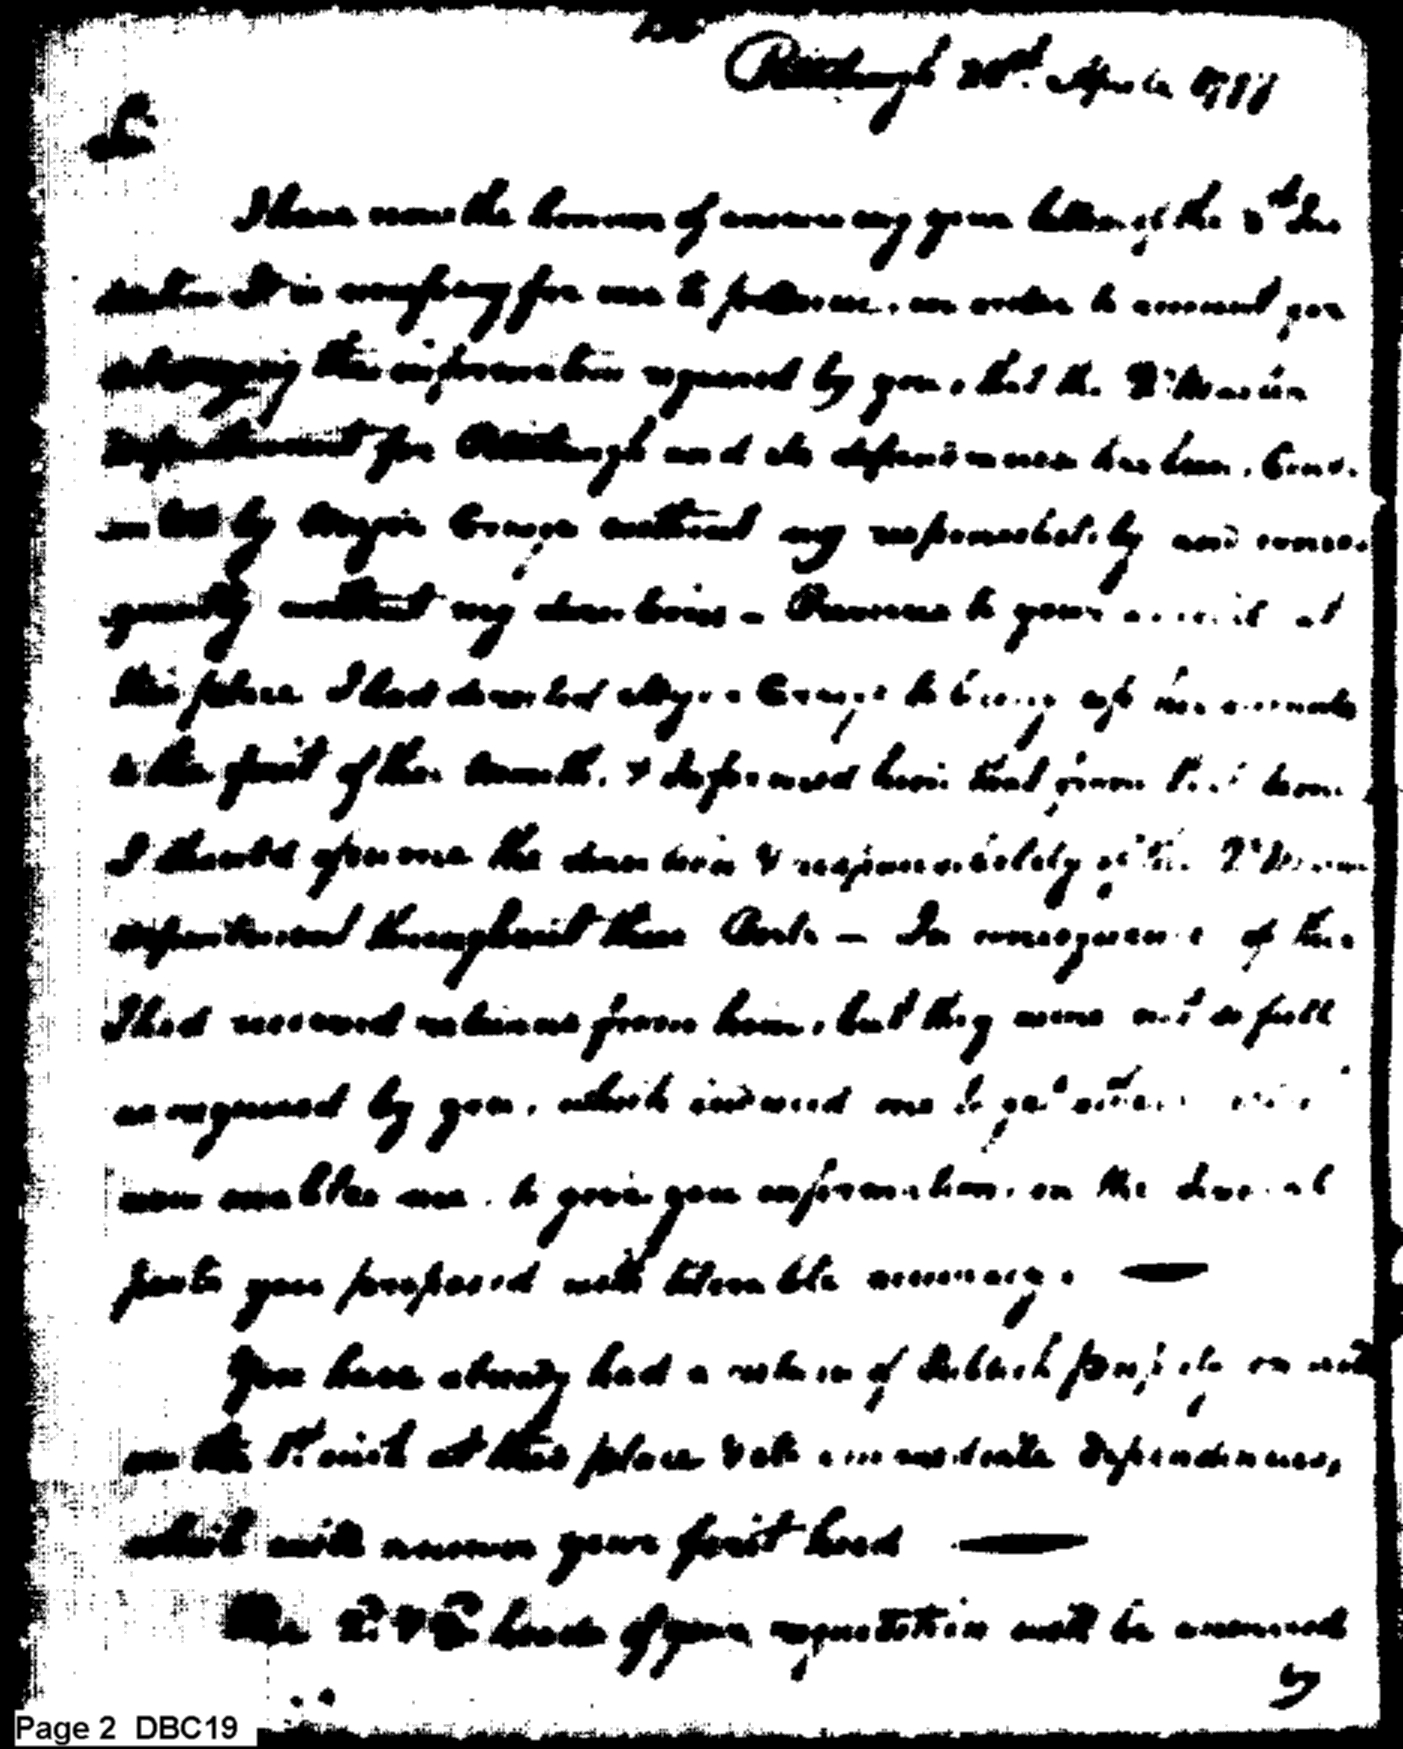 Pittsburgh 20th. April
Sir
I have now the honour of answering your letter of the 8th Ins
it is necessary for me to premise, in order to account for
delaying the information required by you, that the Qr Master
department for Pittsburgh and its dependences has been, Cond
by Major Craig without my responsibility and conse
quently without my directions - Previous to your arrival at
this place I had directed Major Craig to bring up his accounts
to the first of this month, & Informed him that from that time
I should assume the direction & responsibility of the Qr Mr
department throughout these Posts — In consequence of this
I had received returns from him, but they were not so full
as required by you, which induced me to get others
now enables me, to give you information, on the several
points you proposed with tolerable accuracy. —
You have already had a return of Publick property on
on the 1st. inst. at this place & its immediate dependences,
which will answer your first head —
The 2. & heads of your requisition will be answered
by
Page 2 DBC19